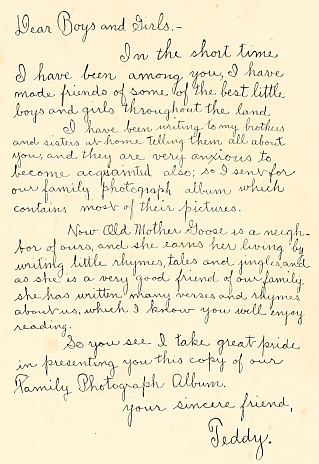 Dear Boys and Girls.-
In the short time
I have been among you, I have
made friends of some of the best little
boys and girls throughout the land
I have been writing to my brothers
and sisters at home telling them all about
you, and they are very anxious to
become acquainted also; so I sent for
our family photograph album which
contains most of their pictures.
Now Old Mother Goose is a neigh-
bor of ours, and she earns her living by
writing little rhymes, tales and jingles, and
as she is a very good friend of our family
she has written many verses and rhymes
about us, which I know you will enjoy
reading.
So you see I take great pride
in presenting you this copy of our
Family Photograph Album.
Your sincere friend,
Teddy.